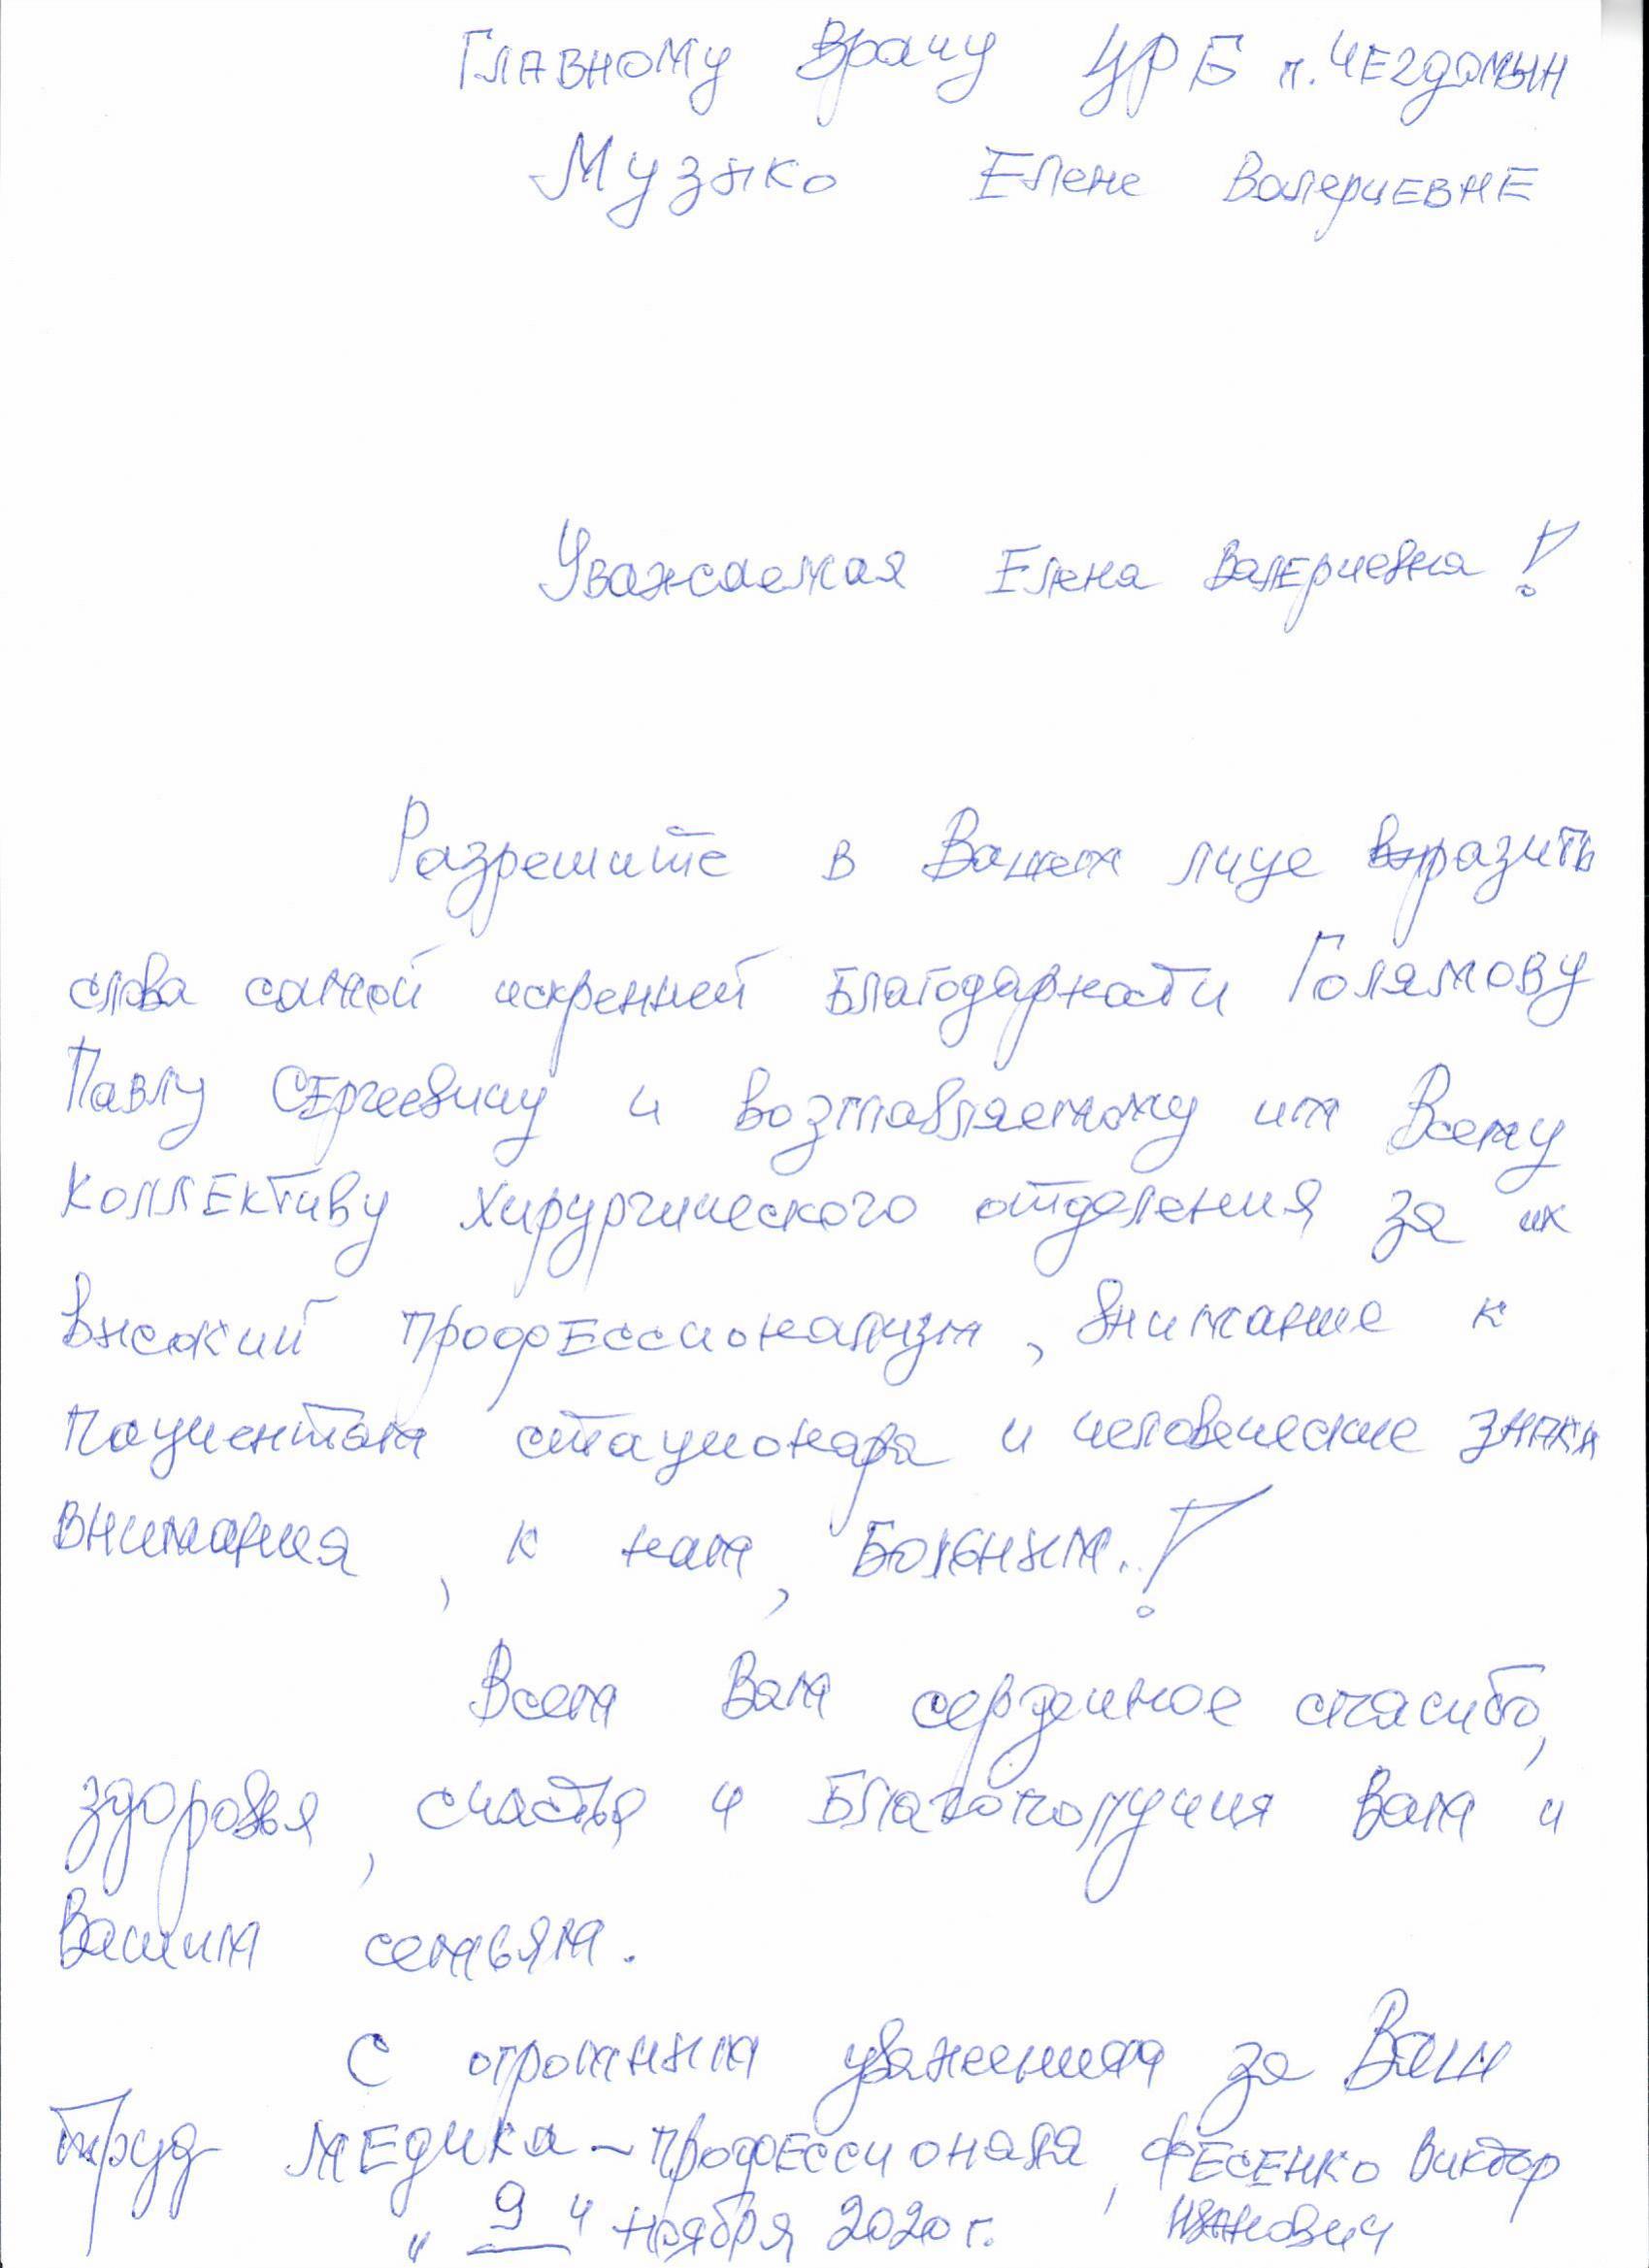 Главному врачу ЦРБ п. Чегдомын
Музыко Елене Валериевне
Уважаемая Елена Валериевна!
Разрешите в Вашем лице выразить
слова самой искренней благодарности Голямову
Павлу Сергеевичу и возглавляемому им Всему
коллективу хирургического отделения за их
высокий профессионализм, внимание к
пациентам стационара и человеческие знаки
внимания, к нам, больным.!
Всем Вам сердечное спасибо,
здоровья, счастья и благополучия Вам и
Вашим семьям.
С огромным уважением за Ваш
труд медика-профессионала, Фесенко Виктор
"9" ноября 2020 г. Иванович